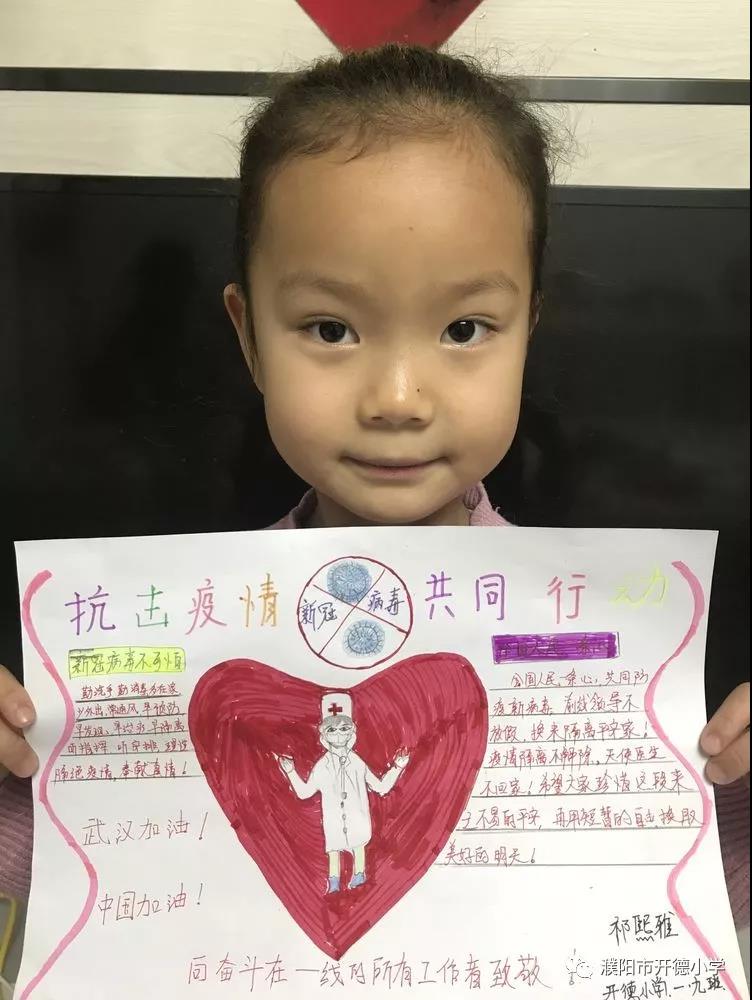 抗击疫情 新冠病毒 共同行动
新冠病毒不可怕
勤洗手 勤消毒 多在家
少外出，常通风 早预防
早发现，早治疗 早隔离
听指挥 听安排 理智
肺炎疫情，奉献真情！
武汉加油！
中国加油！
全国人民一条心，共同防
疫新病毒 前线领导不
放假 换来隔离平安家！
疫情隔离不解除，天使医生
不回家！希望大家珍惜这段来
之不易的平安，再用短暂的自由换取
美好的明天！
向奋斗在一线的所有工作者致敬！
祁熙雅
开德小学 一.九班
濮阳市开德小学